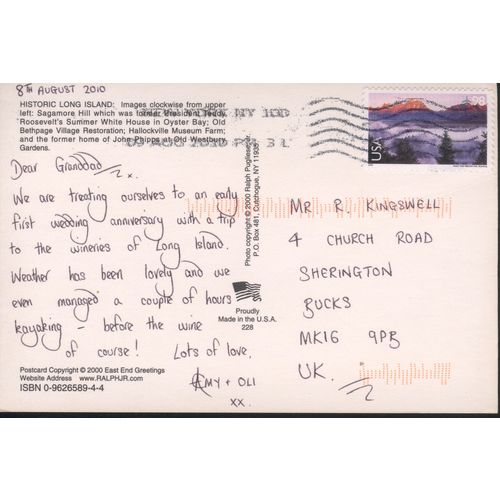 8TH AUGUST 2010
HISTORIC LONG ISLAND: Images clockwise from upper
left: Sagamore Hill which was former President Teddy
Roosevelt's Summer White House in Oyster Bay; Old
Bethpage Village Restoration; Hallockville Museum Farm;
and the former home of John Phipps at Old Westbury
Gardens.
Dear Granddad x.
We are treating ourselves to an early
first wedding anniversary with a trip
to the wineries of Long Island.
Weather has been lovely and we
even managed a couple of hours
kayaking - before the wine
of course! Lots of love,
AMY + OLI
xx.
Postcard Copyright © 2000 East End Greetings
Website Address www.RALPHJR.com
ISBN 0-9626589-4-4
Photo copyright © 2000 Ralph Pugliese, Jr.
P.O. Box 481, Cutchogue, NY 11935
Proudly
Made in the U.S.A.
228
USA
98
MR R. KINGSWELL
4 CHURCH ROAD
SHERINGTON
BUCKS
MK16 9PB
UK.